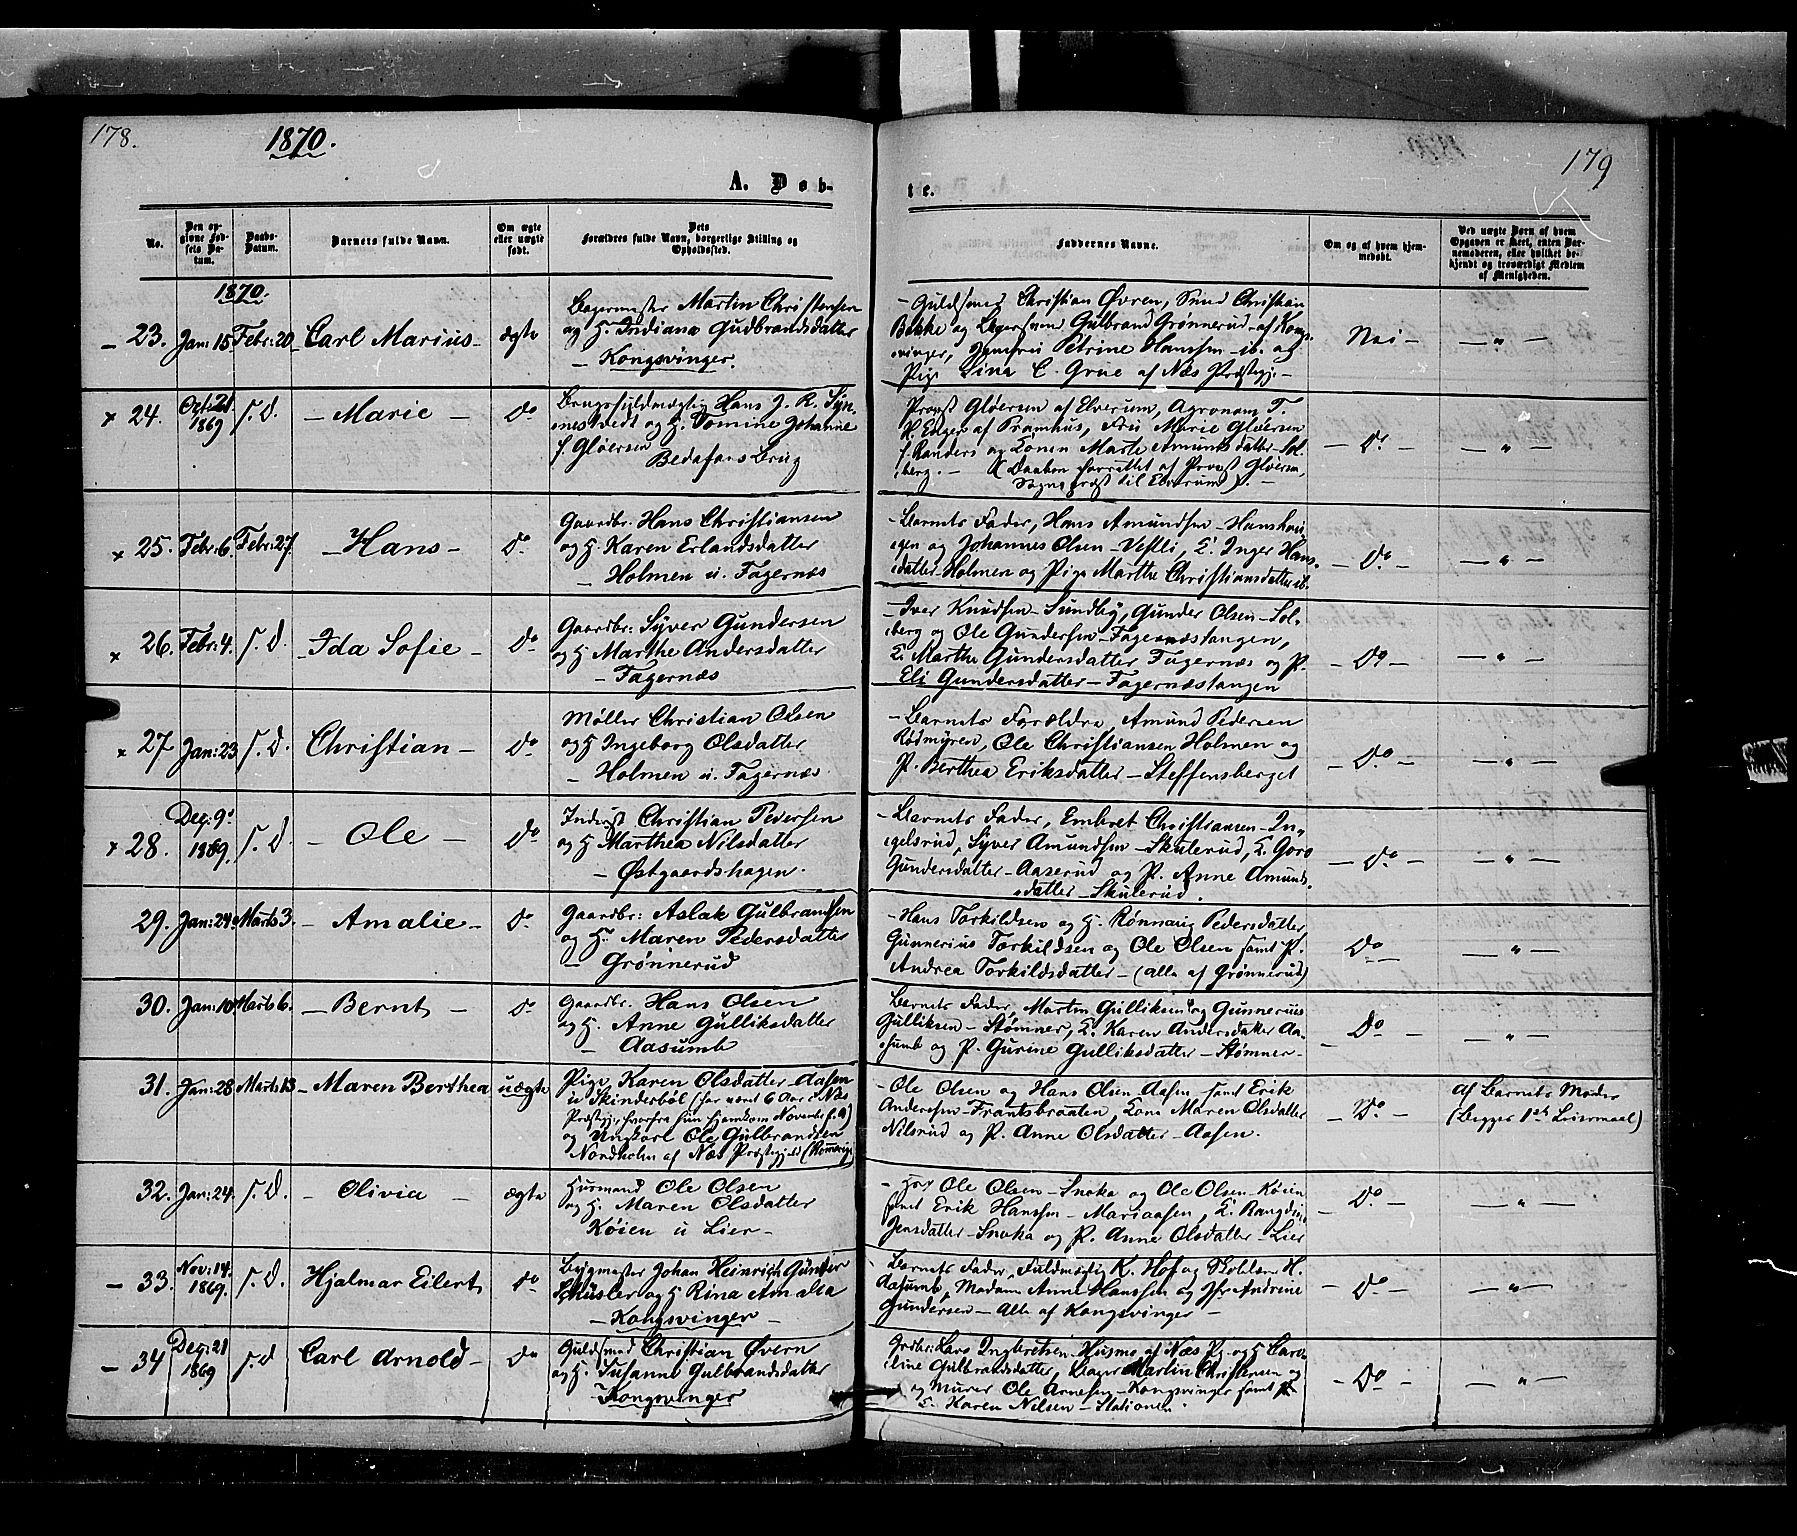 178.
1870.
A. Døb-
No.
Den opgivne Fødsels Datum.
Daabs-Datum.
Barnets fulde Navn.
Om ægte eller uægte født.
Dets Forældres fulde Navn, borgerlige Stilling og Opholdssted.
1870.
23. Jan: 15 Febr: 20 Carl Marius ægte
Bagermester Martin Christensen
og H. Indiana Gudbrandsdatter
Kongsvinger.
24. Oct: 21 1869 s. D. Marie Do
Brugsfuldmægtig Hans J. R. Syn-
nestvedt og H. Tomine Johanne
f. Gløersen
Bedafors Brug
25. Febr: 6. Febr: 27 Hans Do
Gaardbr. Hans Christiansen
og H. Karen Erlandsdatter
Holmen u. Fagernæs
26. Febr: 4. s. D. Ida Sofie Do
Gaardbr: Syver Gundersen
og H. Marthe Andersdatter
Fagernæs
27 Jan: 23 s. D. Christian Do
Møller Christian Olsen
og H Ingeborg Olsdatter
Holmen u. Fagernæs
28. Dec: 9 1869. s. D Ole Do
Inderst Christian Pedersen
og H Marthea Nilsdatter
Østgaardshagen.
29. Jan: 24 Marts 3. Amalie Do
Gaardbr: Aslak Gulbrandsen
og H. Maren Pedersdatter
Grønnerud
30. Jan: 10 Marts 6. Bernt Do
Gaardbr. Hans Olsen
og H. Anne Gulliksdatter
Aasumb
31. Jan: 28 Marts 13 Maren Berthea uægte
Pige Karen Olsdatter Aasen
u Skinderbøl (har været 6 Aar i Næs
Præstgj: hvorfra hun hjemkom Novembr f. A)
og Ungkarl Ole Gulbrandsen
Nordholm af Næs Præstgjeld (Romerige)
32. Jan: 24. s. D. Olivia ægte
Husmand Ole Olsen
og H. Maren Olsdatter
Køien u Lier
33. Nov: 14. 1869. s. D. Hjalmar Eilert Do
Bygmester Johan Heinrich Günter
Schüsler og H Rina Amalea
Kongsvinger
34 Dec: 21 1869 s. D Carl Arnold Do
Guldsmed Christian Øvern
og H. Susanne Gulbrandsdatter
Kongsvinger
179
te.
Faddernes Navne.
Om og af hvem hjemmedøbt.
Ved uægte Børn af hvem Opgaven er skeet, enten Barnemoderen, eller hvilket bekjendt og troværdigt Medlem af Menigheden.
Guldsmed Christian Øvren, Smed Christian
Bekke og Bagersvend Gulbrand Grønnerud af Kongs-
vinger, Jomfru Petrine Hanssen ib. og
Pige Lina C. Grue af Næs Præstgj:
Nei "
Provst Gløersen af Elverum, Agronom T.
R. Enger af Pramhus, Fru Marie Gløersen
f. Randers og Konen Marte Amundsdatter Sol-
berg. (Daaben forrettet af Provst Gløersen,
Sognepræst til Elverum).
Do "
Barnets Fader, Hans Amundsen Hanshau-
gen og Johannes Olsen Vestli, K. Inger Hans-
datter Holmen og Pige Marthe Christiansdatter ib.
Do "
Iver Knudsen Sundby, Gunder Olsen Sol-
berg og Ole Gundersen Fagernæstangen,
K. Marthe Gundersdatter Fagernæs og P.
Eli Gundersdatter Fagernæstangen
Do "
Barnets Forældre, Amund Pedersen
Rødmyren, Ole Christiansen Holmen og
P. Berthea Eriksdatter Steffensberget
Do "
Barnets Fader, Embret Christiansen In-
gelsrud, Syver Amundsen Skulerud, K. Goro
Gundersdatter Aaserud og P. Anne Amunds-
datter Skulerud.
Do "
Hans Torkildsen og H. Rønnaug Pedersdatter
Gunnerius Torkildsen og Ole Olsen samt P.
Andrea Torkildsdatter (alle af Grønnerud)
Do "
Barnets Fader, Martin Gulliksen og Gunnerius
Gulliksen Stømner, K. Karen Andersdatter Aa-
sumb og P. Gurine Gulliksdatter Stømner
Do "
Ole Olsen og Hans Olsen Aasen samt Erik
Andersen Frantsbraaten, Kone Maren Olsdatter
Nilsrud og P. Anne Olsdatter Aasen.
Do
af Barnets Moder
(Begges 1ste Leiermaal)
Ole Olsen Snoka og Ole Olsen Køien
samt Erik Hanssen Mariaasen, K. Rangdi
Jensdatter Snoka og P. Anne Olsdatter Lier
Do "
Barnets Fader, Fuldmægtig K. Hof og Skolelærer H.
Aasumb, Madam Anne Hanssen og Jfr Andrine
Gundersen Alle af Kongsvinger
Do "
Grdbr: Lars Ingebretsen Husmo af Næs Pg. og H Caro-
line Gulbrandsdatter, Bager Martin Christensen og
og Murer Ole Arnesen Kongsvinger samt P
K. Karen Nilsen Stationen.
Do "